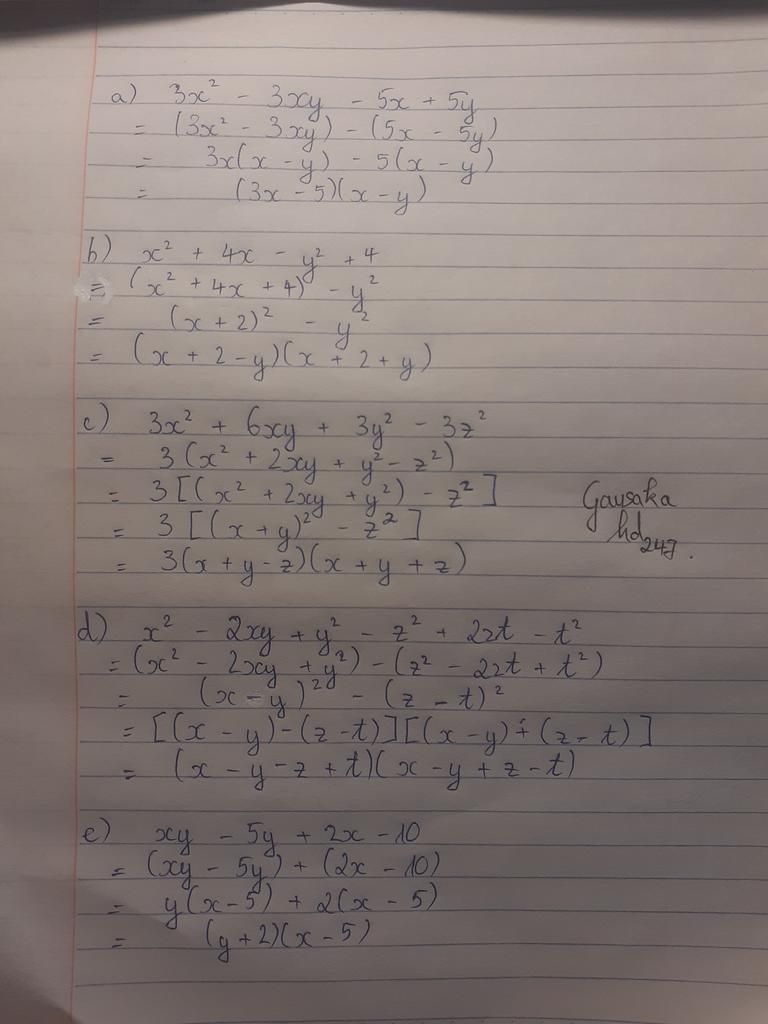 a) 3x² - 3xy - 5x + 5y
= (3x² - 3xy) - (5x - 5y)
= 3x(x - y) - 5(x - y)
= (3x - 5)(x - y)
b) x² + 4x - y² + 4
= (x² + 4x + 4) - y²
= (x + 2)² - y²
= (x + 2 - y)(x + 2 + y)
c) 3x² + 6xy + 3y² - 3z²
= 3(x² + 2xy + y² - z²)
= 3[(x² + 2xy + y²) - z²]
= 3[(x + y)² - z²]
= 3(x + y - z)(x + y + z)
Gausaka
hd247.
d) x² - 2xy + y² - z² + 2zt - t²
= (x² - 2xy + y²) - (z² - 2zt + t²)
= (x - y)² - (z - t)²
= [(x - y) - (z - t)][(x - y) + (z - t)]
= (x - y - z + t)(x - y + z - t)
e) xy - 5y + 2x - 10
= (xy - 5y) + (2x - 10)
= y(x - 5) + 2(x - 5)
= (y + 2)(x - 5)